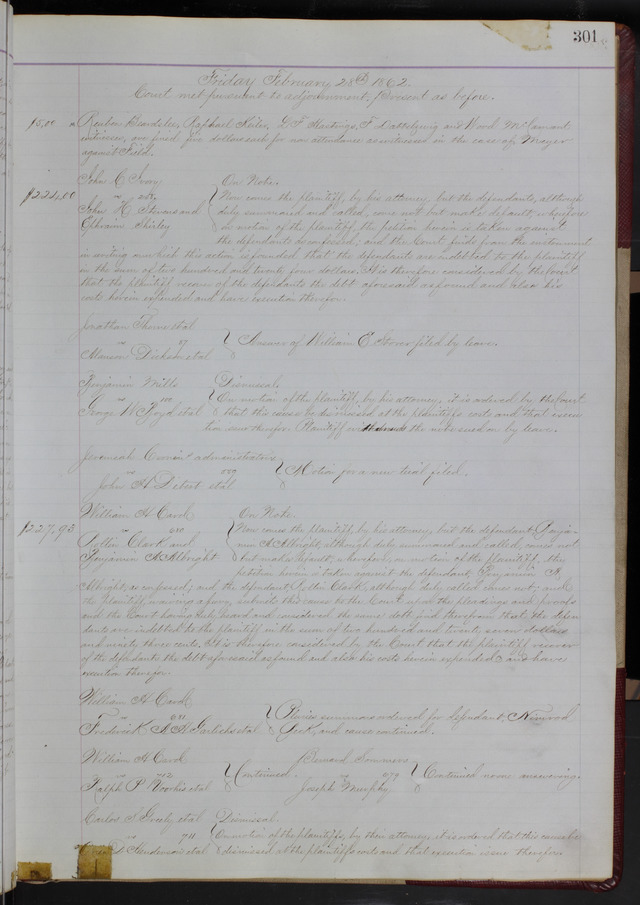 301
Friday February 28th 1862.
Court met pursuant to adjournment. Present as before.
$5.00 Reuben Beardslee, Raphael Keiler, L F Hastings, F Dattelzweig and Wood McCamant
witnesses, are fined five dollars each for non attendance as witnesses in the case of Mayer
against Field.
John C Ivory On Note.
$224.00 vs Now comes the plaintiff, by his attorney, but the defendants, although
John H Stevens and duly summoned and called, come not but make default, wherefore
Ephraim Shirley on motion of the plaintiff, the petition herein is taken against
the defendants as confessed; and the Court finds from the instrument
in writing on which this action is founded that the defendants are indebted to the plaintiff
in the sum of two hundred and twenty four dollars. It is therefore considered by the Court
that the plaintiff recover of the defendants the debt aforesaid as found and also his
costs herein expended and have execution therefor.
Jonathan et al
vs 97 Answer of William E Stover filed by leave.
Manson et al
Benjamin Mills Dismissal.
vs 110 On motion of the plaintiff, by his attorney, it is ordered by the Court
George W Boyd et al that this cause be dismissed at the plaintiffs costs and that execu
tion issue therefor. Plaintiff withdraws the note sued on by leave.
Jeremiah administrators
vs 559 Motion for a new trial filed.
John H et al
William H Carol On Note
$227.93 vs 610 Now comes the plaintiff, by his attorney, but the defendant Benja-
Clark and min A Albright, although duly summoned and called, comes not
Benjamin A Albright but makes default, wherefore, on motion of the plaintiff, the
petition herein is taken against the defendant, Benjamin A
Albright, as confessed; and the defendant Clark, although duly called comes not; and
the plaintiff, waiving a jury, submits this cause to the Court upon the pleadings and proofs
and the Court having duly heard and considered the same doth find therefrom that the defen
dants are indebted to the plaintiff in the sum of two hundred and twenty seven dollars
and ninety three cents. It is therefore considered by the Court that the plaintiff recover
of the defendants the debt aforesaid as found and also his costs herein expended and have
execution therefor.
William H Carol
vs 611 Pluries summons ordered for defendant Nimrod
Frederick et al and cause continued.
William H Carol Bernard Sommers
vs 712 Continued. vs 679 Continued none answering.
Ralph P Voorhis et al Joseph Murphy
Carlos S Greely et al Dismissal.
vs 711 On motion of the plaintiffs, by their attorney, it is ordered that this cause be
Henderson et al dismissed at the plaintiffs costs and that execution issue therefor.